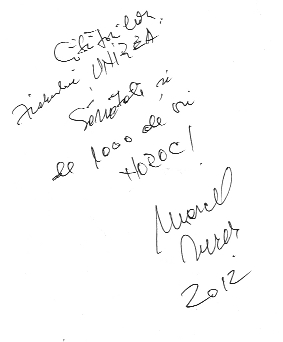 Cititorilor
ziarului UNIREA
Sănătate și
de 1000 de ori
NOROC!
Marcel
Iureș
2012